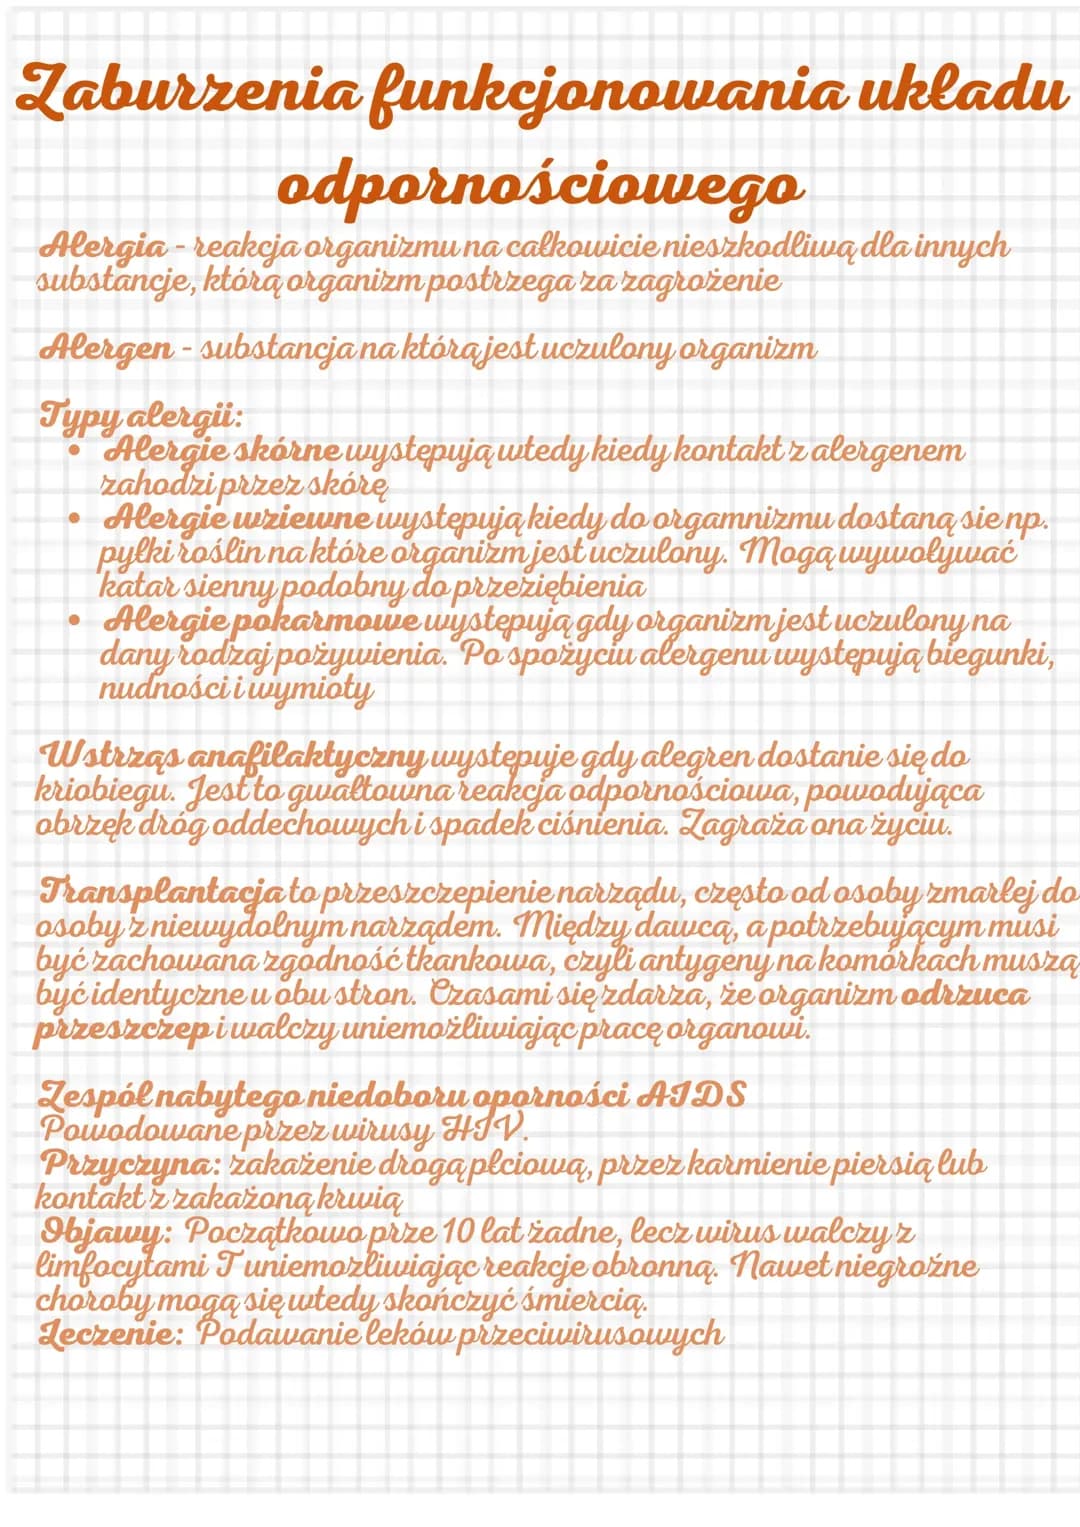 Zaburzenia funkcjonowania układu
odpornościowego
Alergia - reakcja organizmu na całkowicie nieszkodliwą dla innych
substancje, którą organizm postrzega za zagrożenie
Alergen - substancja na którą jest uczulony organizm
Typy alergii:
• Alergie skórne występują wtedy kiedy kontakt z alergenem
zahodzi przez skórę
• Alergie wziewne występują kiedy do orgamnizmu dostaną sie np.
pyłki roślin na które organizm jest uczulony. Mogą wywoływać
katar sienny podobny do przeziębienia
• Alergie pokarmowe występują gdy organizm jest uczulony na
dany rodzaj pożywienia. Po spożyciu alergenu występują biegunki,
nudności i wymioty
Wstrząs anafilaktyczny występuje gdy alegren dostanie się do
kriobiegu. Jest to gwałtowna reakcja odpornościowa, powodująca
obrzęk dróg oddechowych i spadek ciśnienia. Zagraża ona życiu.
Transplantacja to przeszczepienie narządu, często od osoby zmarłej do
osoby z niewydolnym narządem. Między dawcą, a potrzebującym musi
być zachowana zgodność tkankowa, czyli antygeny na komórkach muszą
być identyczne u obu stron. Czasami się zdarza, że organizm odrzuca
przeszczep i walczy uniemożliwiając pracę organowi.
Zespół nabytego niedoboru oporności AIDS
Powodowane przez wirusy HIV.
Przyczyna: zakażenie drogą płciową, przez karmienie piersią lub
kontakt z zakażoną krwią
Objawy: Początkowo prze 10 lat żadne, lecz wirus walczy z
limfocytami T uniemożliwiając reakcje obronną. Nawet niegroźne
choroby mogą się wtedy skończyć śmiercią.
Leczenie: Podawanie leków przeciwirusowych